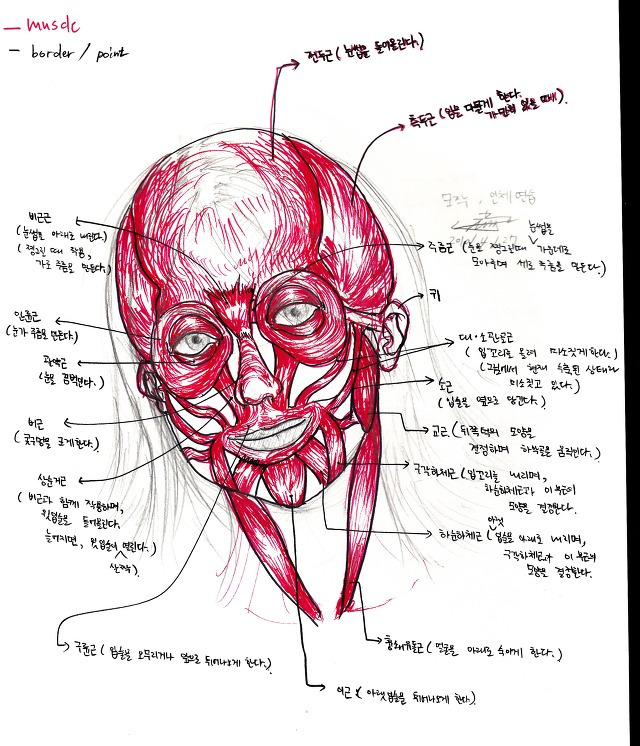 — muscle
— border / point
전두근 ( 눈썹을 들어올린다.)
측두근 (입을 다물게 한다.
가만히 있을 때에).
모작, 인체 연습
비근근
( 눈썹을 아래로 내린다.)
( 찡그릴 때 작용,
가로 주름을 만든다.)
추미근 (눈을 찡그릴때 눈썹을 가운데로
모아주며 세로 주름을 만든다.)
귀
안륜근
(눈가 주름을 만든다.)
대·소관골근
( 입꼬리를 올려 미소짓게한다.)
(그림에서 현재 수축된 상태라
미소짓고 있다.)
소근
(입술을 옆으로 당긴다.)
눈을 깜박인다.)
비근
( 콧구멍을 크게한다.)
교근 ( 뒤쪽 턱의 모양을
결정하며 하악골을 움직인다.)
구각하체근 (입꼬리를 내리며,
하순하체근과 이 부근의
모양을 결정한다.)
상순거근
( 비근과 함께 작용하며,
윗입술을 들어올린다.
늘어지면, 윗입술이 살짝 열린다.)
하순하체근 (입술 안쪽 아래로 내리며,
구각하체근과 이 부근의
모양을 결정한다.
구륜근 ( 입술을 오므리거나 앞으로 튀어나오게 한다.)
흉쇄유돌근 ( 얼굴을 아래로 숙이게 한다.)
이근 ( 아랫입술을 튀어나오게 한다.)